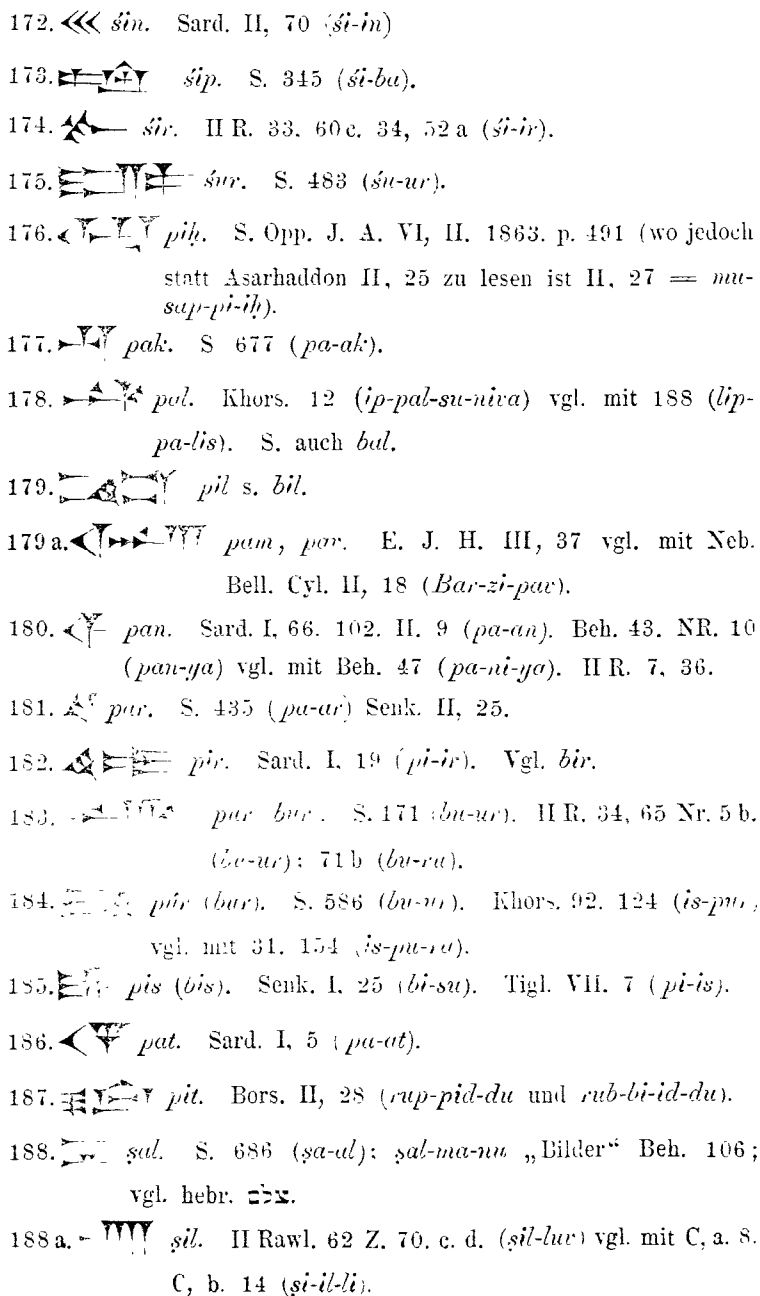 172. 𒌍 śin. Sard. II, 70 (śi-in)
173. śip. S. 345 (śi-ba).
174. śir. II R. 33. 60 c. 34, 52 a (śi-ir).
175. śur. S. 483 (śu-ur).
176. piḫ. S. Opp. J. A. VI, II. 1863. p. 491 (wo jedoch
statt Asarhaddon II, 25 zu lesen ist II, 27 = mu-
sap-pi-iḫ).
177. pak. S 677 (pa-ak).
178. pal. Khors. 12 (ip-pal-su-niva) vgl. mit 188 (lip-
pa-lis). S. auch bal.
179. pil s. bil.
179 a. pam, par. E. J. H. III, 37 vgl. mit Neb.
Bell. Cyl. II, 18 (Bar-zi-pav).
180. pan. Sard. I, 66. 102. II. 9 (pa-an). Beh. 43. NR. 10
(pan-ya) vgl. mit Beh. 47 (pa-ni-ya). II R. 7, 36.
181. par. S. 435 (pa-ar) Senk. II, 25.
182. pir. Sard. I, 19 (pi-ir). Vgl. bir.
183. pur bur. S. 171 (bu-ur). II R. 34, 65 Nr. 5 b.
(bu-ur); 71 b (bu-ru).
184. púr (bur). S. 586 (bu-ur). Khors. 92. 124 (is-pur,
vgl. mit 31. 154 (is-pu-ra).
185. pis (bis). Senk. I, 25 (bi-su). Tigl. VII. 7 (pi-is).
186. pat. Sard. I, 5 (pa-at).
187. pit. Bors. II, 28 (rup-pid-du und rub-bi-id-du).
188. ṣal. S. 686 (ṣa-al); ṣal-ma-nu „Bilder“ Beh. 106;
vgl. hebr. צלם.
188 a. ṣil. II Rawl. 62 Z. 70. c. d. (ṣil-luv) vgl. mit C, a. 8.
C, b. 14 (ṣi-il-li).